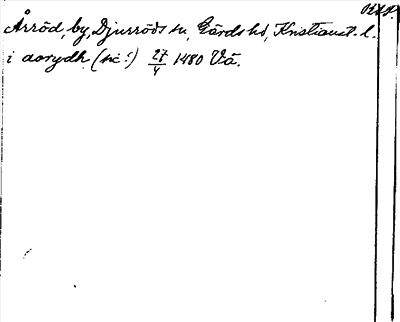 Årröd, by, Djurröds sn, Gärds hd, Kristianst. l.
i aorydh (sic!) 27/4 1480 Vä.